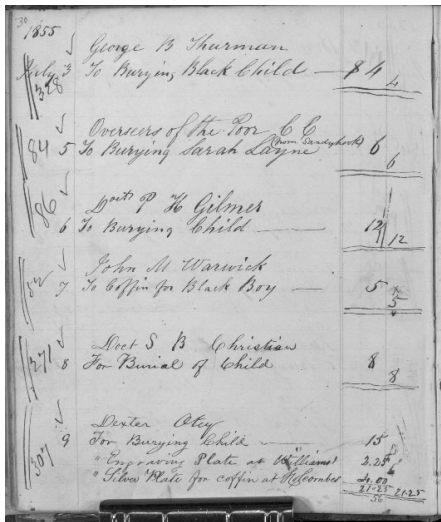 30
1855
George B Thurman
July 3 To Burying Black Child — $ 4 4
328
Overseers of the Poor C C
84 5 To Burying Sarah Layne (from Sandyhook) 6 6
86 Doct P H Gilmer
6 To Burying Child — 12 12
John M Warwick
52 7 To Coffin for Black Boy — 5 5
271 Doct S B Christian
8 For Burial of Child 8 8
Dexter Otey
307 9 For Burying Child — 15
" Engraving Plate at Williams' 2.25
" Silver Plate for coffin at 4.00
21.25 21.25
56